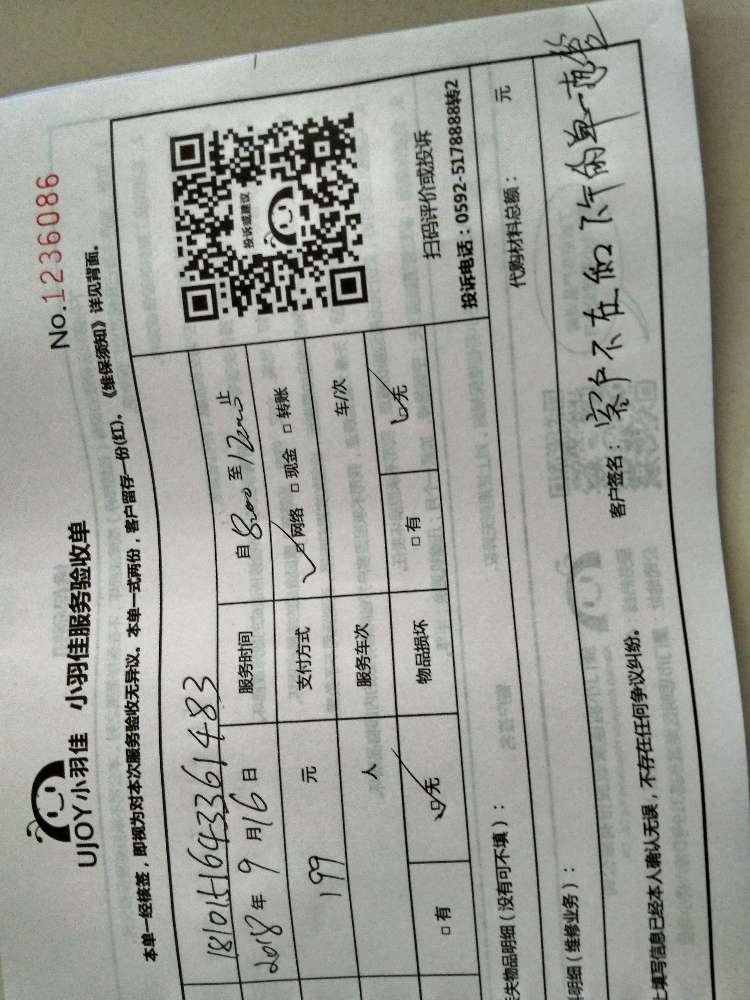 No.1236086
UJOY小羽佳 小羽佳服务验收单
本单一经核签，即视为对本次服务验收无异议。本单一式两份，客户留存一份(红)。《维保须知》详见背面。
投诉或建议
扫码评价或投诉
投诉电话：0592-5178888转2
2018年9月16日 服务时间 自8:00至12:00止
199 元 支付方式 网络 现金 转账
人 服务车次 车/次
有 无 物品损坏 有 无
失物品明细（没有可不填）：
代购材料总额： 元
明细（维修业务）：
填写信息已经本人确认无误，不存在任何争议纠纷。 客户签名：客户不在